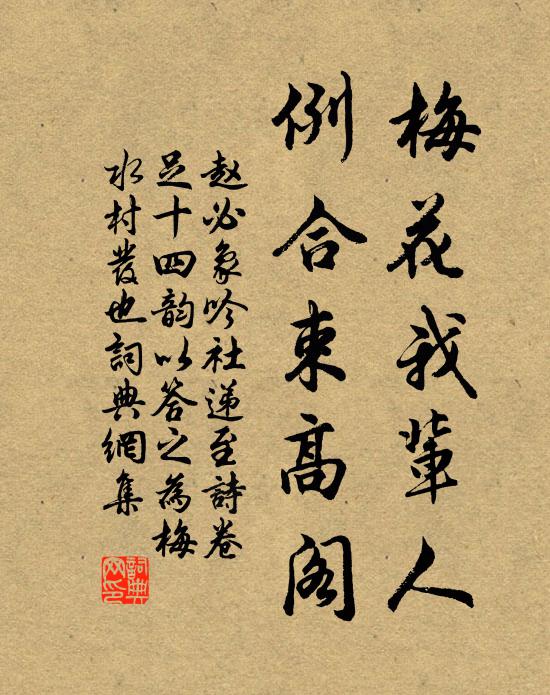 梅花我輩人
例合束高阁
赵必象吟社递至詩卷
足十四韵以答之為梅
水村發也詞典網集
詞典网印